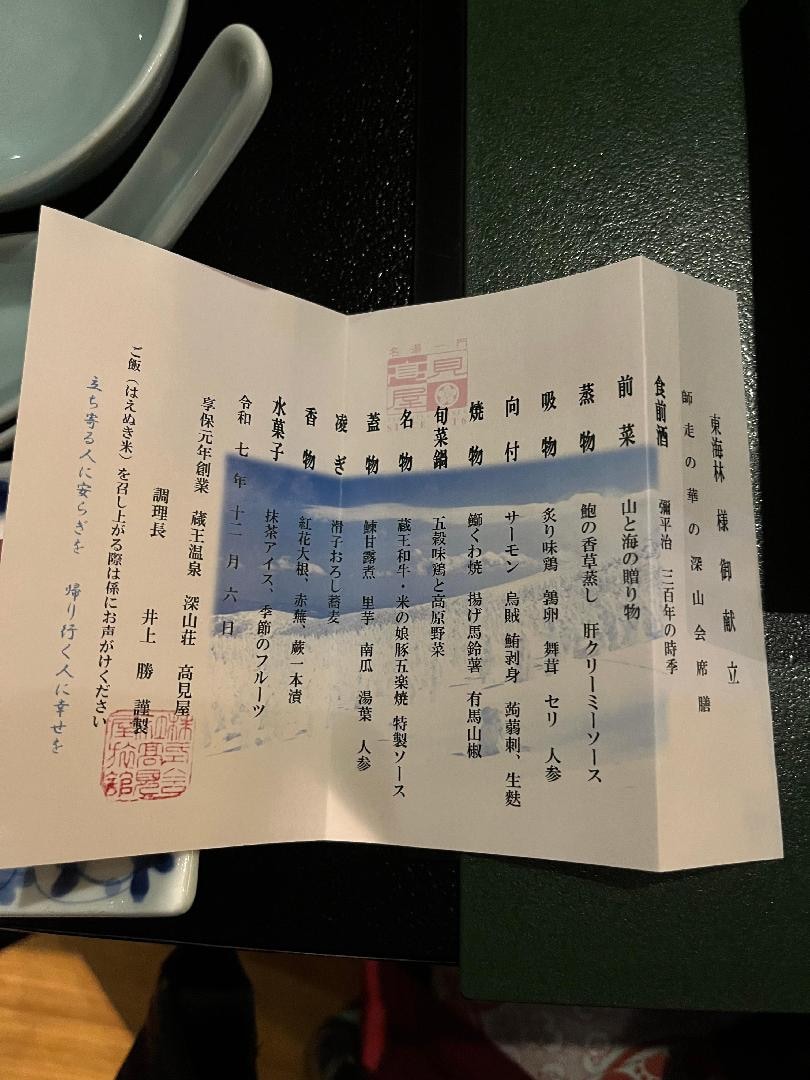 東海林 様 御 献 立
師 走 の 華 の 深 山 会 席 膳
食前酒 彌平治 三百年の時季
前 菜 山と海の贈り物
蒸 物 鮑の香草蒸し 肝クリーミーソース
吸 物 炙り味鶏 鶉卵 舞茸 セリ 人参
向 付 サーモン 烏賊 鮪剥身 蒟蒻刺、生麩
焼 物 鰤くわ焼 揚げ馬鈴薯 有馬山椒
旬菜鍋 五穀味鶏と高原野菜
名 物 蔵王和牛・米の娘豚五楽焼 特製ソース
蓋 物 鰊甘露煮 里芋 南瓜 湯葉 人参
凌 ぎ 滑子おろし蕎麦
香 物 紅花大根、赤蕪、蕨一本漬
水菓子 抹茶アイス、季節のフルーツ
令和 七 年 十二 月 六 日
享保元年創業 蔵王温泉 深山荘 高見屋
調理長 井上 勝 謹製
ご飯（はえぬき米）を召し上がる際は係にお声がけください
立ち寄る人に安らぎを 帰り行く人に幸せを
名湯一門
高見屋